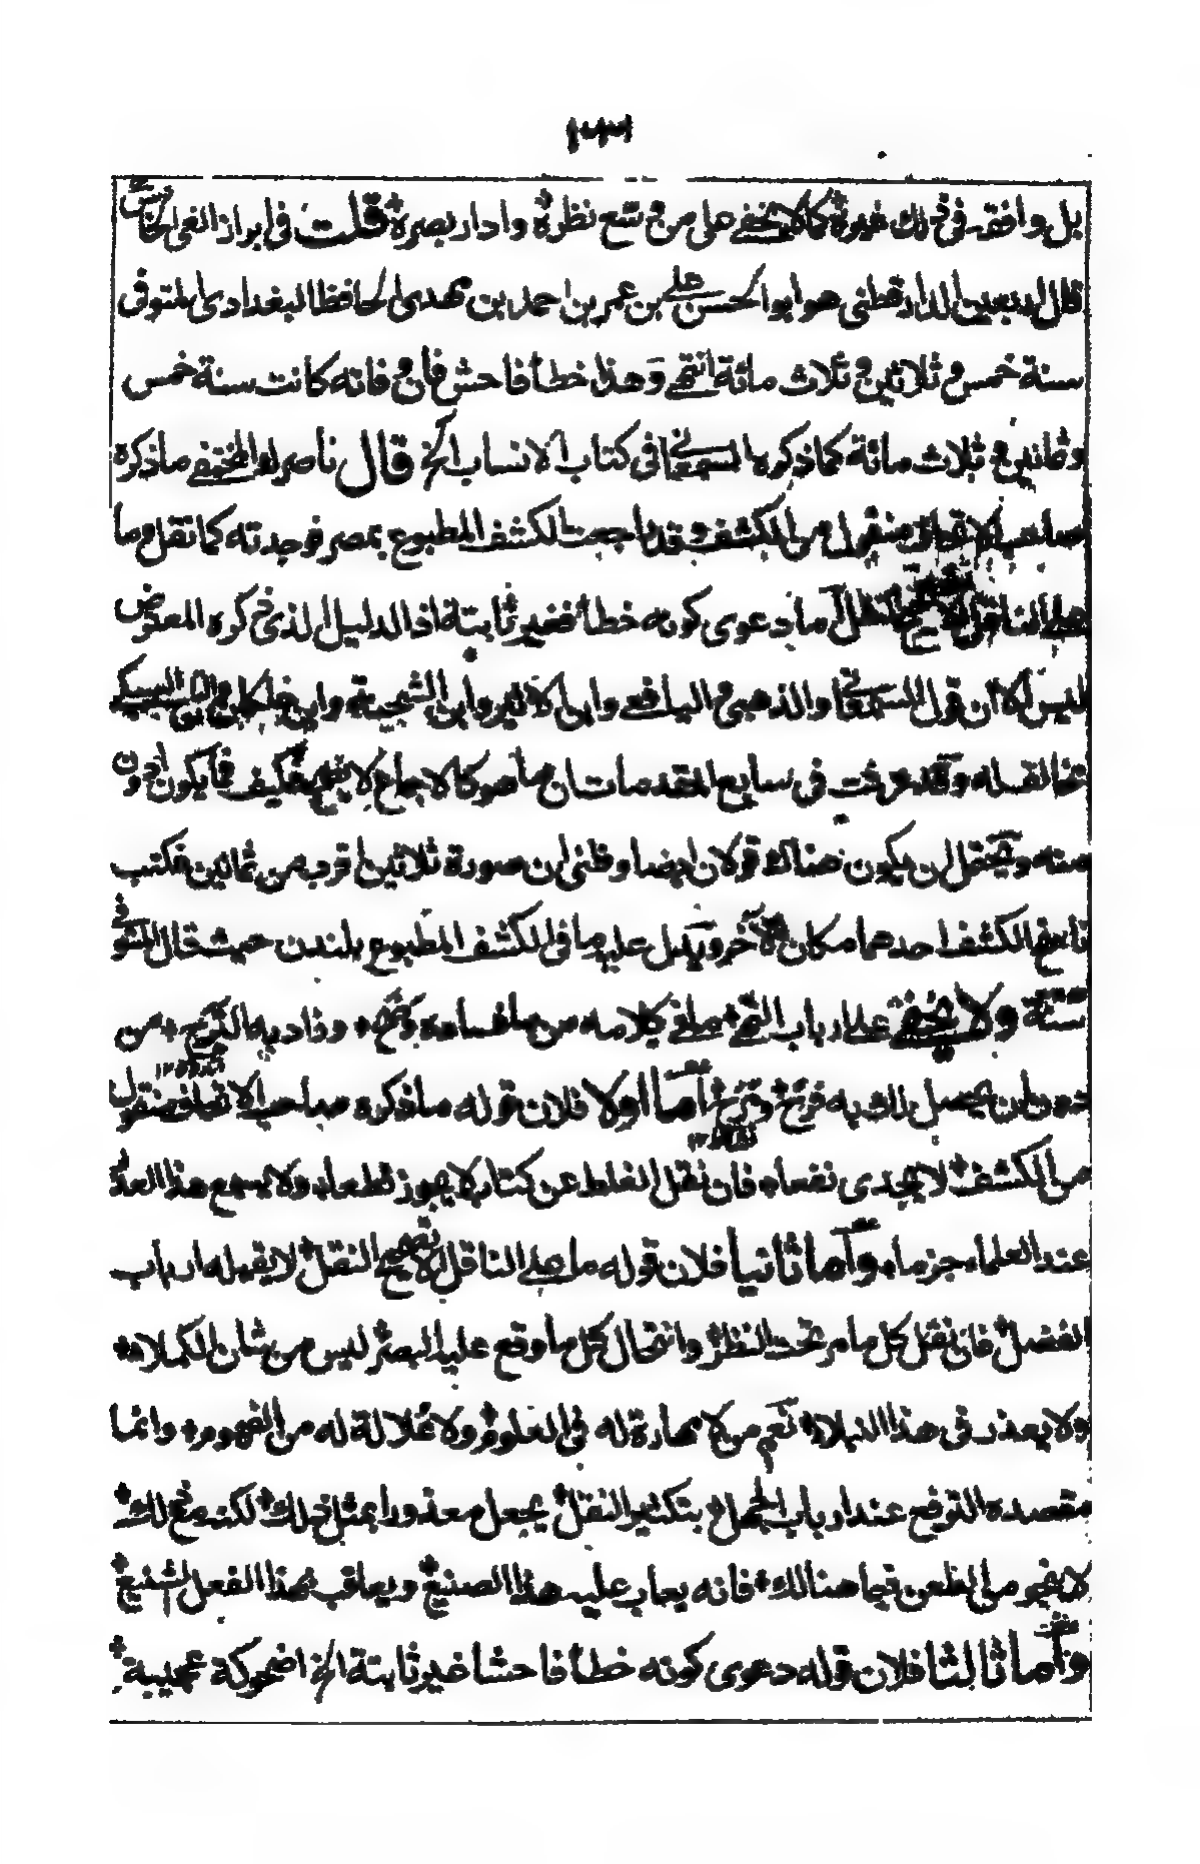 ١٣٣
بل وافقه في ذلك غيره كما لا يخفى على من وسع نظره وادار بصره قلت في ابراز الغي الخامس
قال اربعين الدارقطني هو ابو الحسن علي بن عمر بن احمد بن مهدي الحافظ البغدادي المتوفى
سنة خمس وثلاثين وثلاث مائة انتهى وهذا خطأ فاحش فان وفاته كانت سنة خمس
وثمانين وثلاث مائة كما ذكره السمعاني في كتاب الانساب الخ قال ناصرك المختفى ما ذكره
صاحب الاتحاف منقول من الكشف وقد راجعت الكشف المطبوع بمصر فوجدته كما نقل وما
على الناقل الا تصحيح النقل اما دعوى كونه خطأ فغير ثابتة اذ الدليل الذي ذكره المعترض
ليس الا ان قول السمعاني والذهبي واليافعي وابن الاثير وابن الشحنة وابن خلكان وابن السبكي
مخالف له وقد عرفت في سابع المقدمات ان ما هو كالاجماع لا يفيد فكيف فيما يكون ادون
منه ويحتمل ان يكون هناك قولان ايضا وظني ان صورة ثلاثين اقرب من ثمانين فكتب
ناسخ الكشف احدهما مكان الآخر ويدل عليه ما في الكشف المطبوع بلندن حيث قال المتوفى
سنة ولا يخفى على ارباب النهى ما في كلامه من ما فساده وضح وزاد به الترح من
دون ان يحصل بذلك به فرح ومرح اما اولا فلان قوله ما ذكره صاحب الاتحاف منقول
من الكشف لا يجدى نفعا فان نقل الغلط عن كتاب لا يجوز قطعا ولا يسمع هذا العذر
عند العلماء جزما واما ثانيا فلان قوله ما على الناقل الا تصحيح النقل لا يقبله ارباب
الفضل فان نقل كل ما مر تحت النظر وانتحال كل ما وقع عليه البصر ليس من شان الكملاء
ولا يعذر في هذا النبلاء نعم من لا مهارة له في العلوم ولا غلالة له من الفهوم وانما
مقصده الترفع عند ارباب الجهل بتكثير النقل يجعل معذورا بمثل ذلك لكنه مع ذلك
لا ينجو من الطعن فيما هنالك فانه يعاب عليه هذا الصنيع ويعاقب بهذا الفعل الشنيع
واما ثالثا فلان قوله دعوى كونه خطأ فاحشا غير ثابتة الخ اضحوكة عجيبة